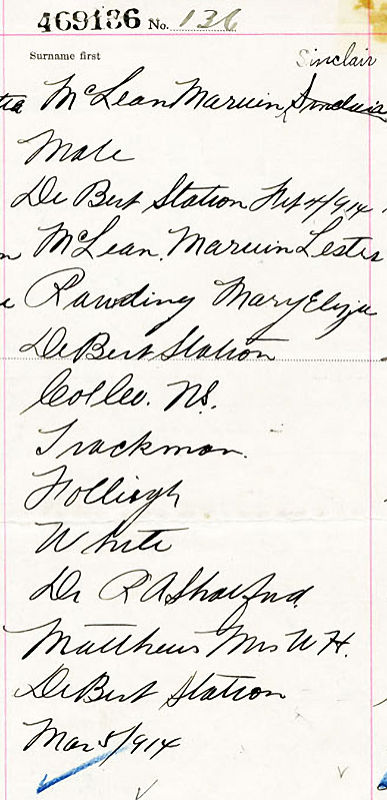 469186 No. 136
Surname first Sinclair
McLean Marvin Sinclair
Male
De Bert Station Feb 4/914
McLean. Marvin Lester
Rawding Mary Eliza
DeBert Station
Col Co. NS.
Trackman.
Folleigh
White
Dr R A
Matthews Mrs W H.
DeBert Station
Mar 5/914